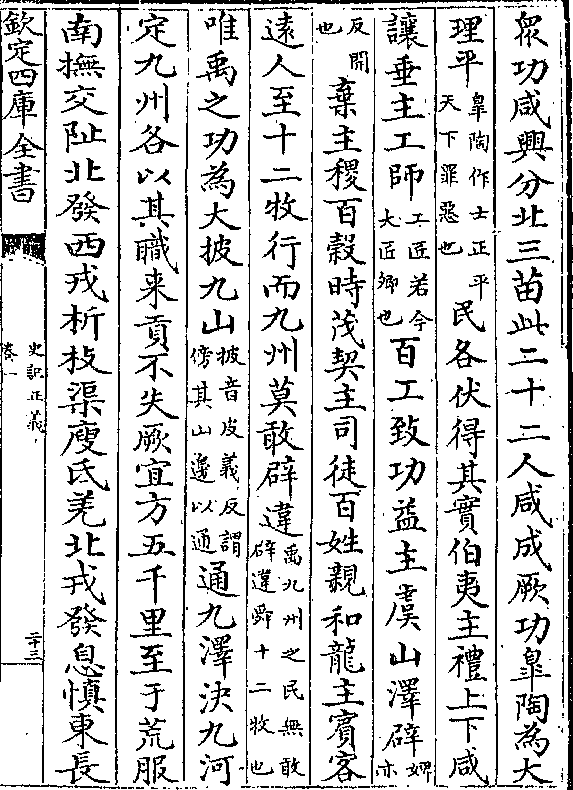 衆功咸興分北三苗此二十二人咸成厥功皐陶為大
理平皐陶作士正平天下罪惡也民各伏得其實伯夷主禮上下咸
讓垂主工師工匠若今大匠卿也百工致功益主虞山澤辟婢亦
反開也棄主稷百穀時茂契主司徒百姓親和龍主賓客
逺人至十二牧行而九州莫敢辟違禹九州之民無敢辟違舜十二牧也
唯禹之功為大披九山披音皮義反謂傍其山邊以通通九澤決九河
定九州各以其職来貢不失厥宜方五千里至于荒服
南撫交阯北發西戎析枝渠廋氐羌北戎發息慎東長
欽定四庫全書
史記正義
卷一
二十三